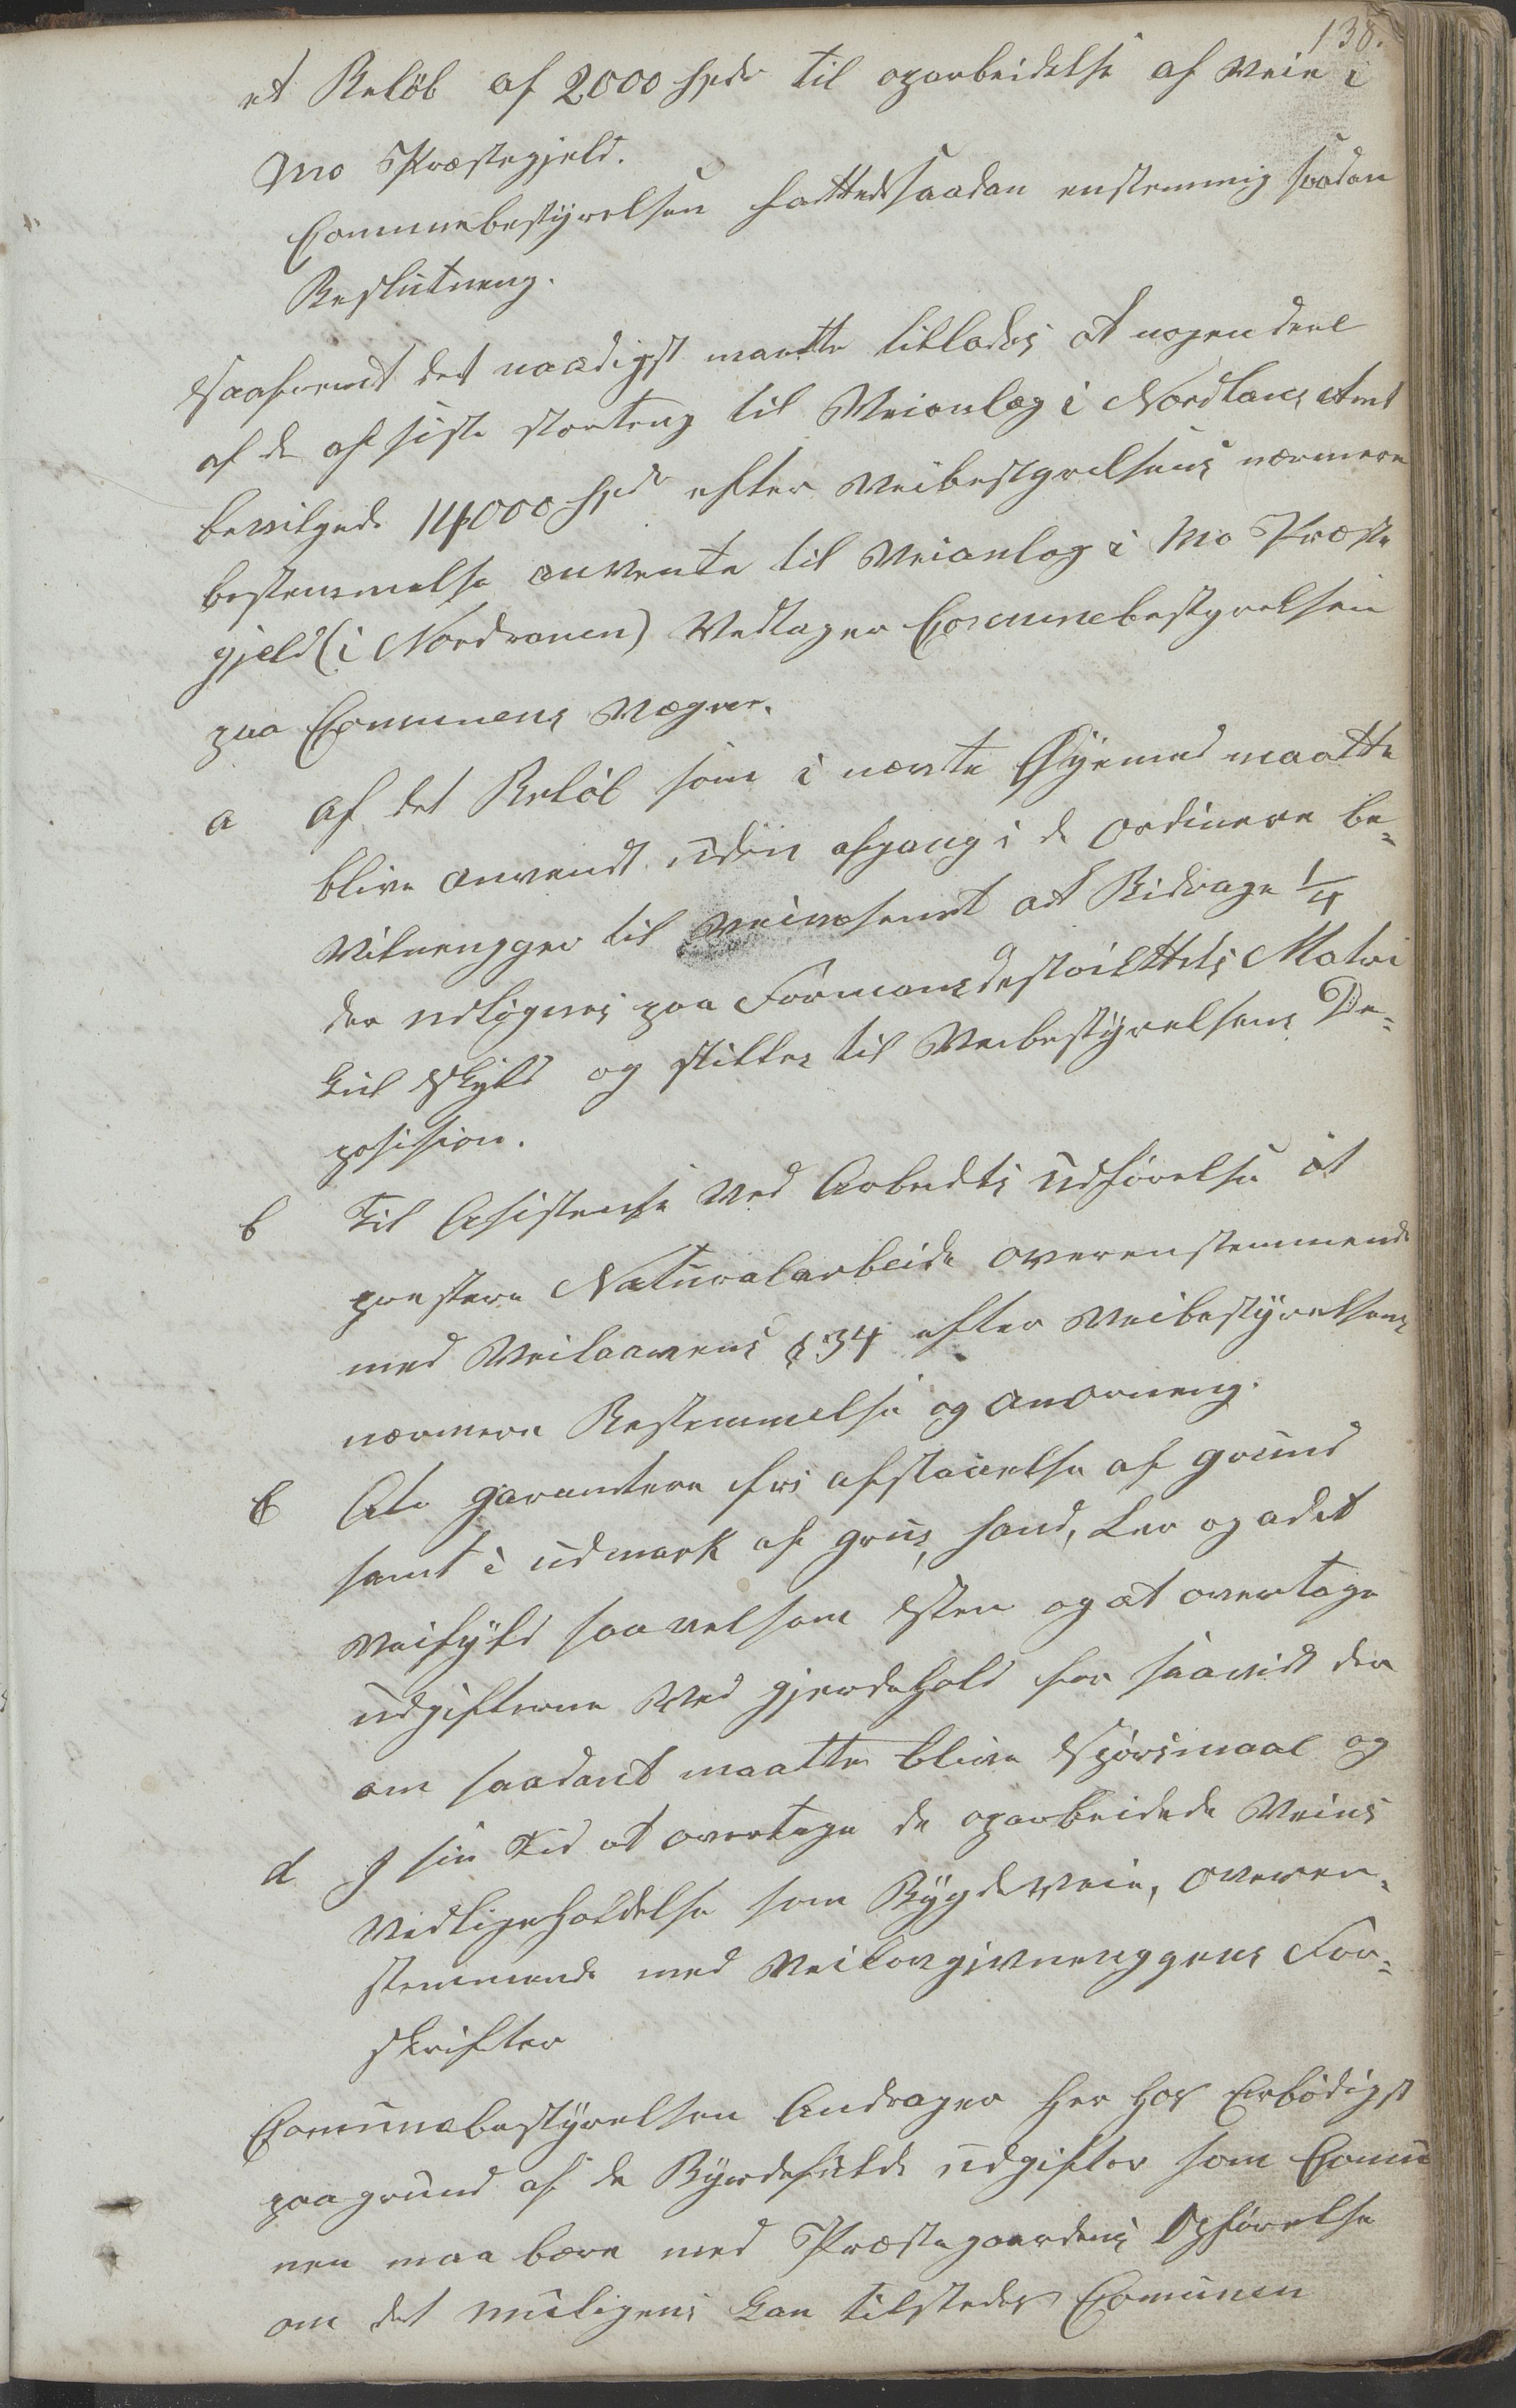 138.
et Beløb af 2000 Spd til oparbeidelse af Veie i
Mo Præstegjeld.
Communebestyrelsen fattede saadan enstemmig saadan
Beslutneng.
Saafremt det naadigst maatte tillades at nogen deel
af de af siste storteng til Veianlæg i Nordlans Amt
bevilgede 14000 Spd efter Veibestyrelsens nærmere
bestemmelse anvente til Veianlæg i Mo Præste
gjeld (i Nordranen) Vedtager Comunebestyrelsen
paa Comunens Vægne.
a af det Beløb som i nævnte Øyemed maatte
blive anvendt uden afgang i de ordinere be-
vilnengger til Veivæsenet at Bidrage 1/4
der udlignes paa Formansdestriktets Matri
kul Skyld og stilles til Veibestyrelsens De-
posision.
b Til Asistense ved Arbeidets Udførelse at
prestere Naturalarbeide overenstemmende
med Veilaavens § 34 efter Veibestyrelsens
nærmere Bestemmelse og anorneng.
C At garantere fri afstaaelse af grund
samt i udmark af grus, sand, Ler og adet
Veifyld saavel som Sten og at overtage
udgifterne Ved gjerdehold for saavidt der
om saadant maatte blive Spørsmaal og
d I sin Tid at overtage de oparbeidede Veies
Vedligeholdelse som Bygdeveie, overen-
stemmende med Veilovgivnenggens For-
skrifter
Comunebestyrelsen Andrager her hos Erbødigst
paa grund af de Byrdefulde udgifter som Comu
nen maa bære med Præstegaardens Opførelse
om det muligens kan tilstedes Comunen